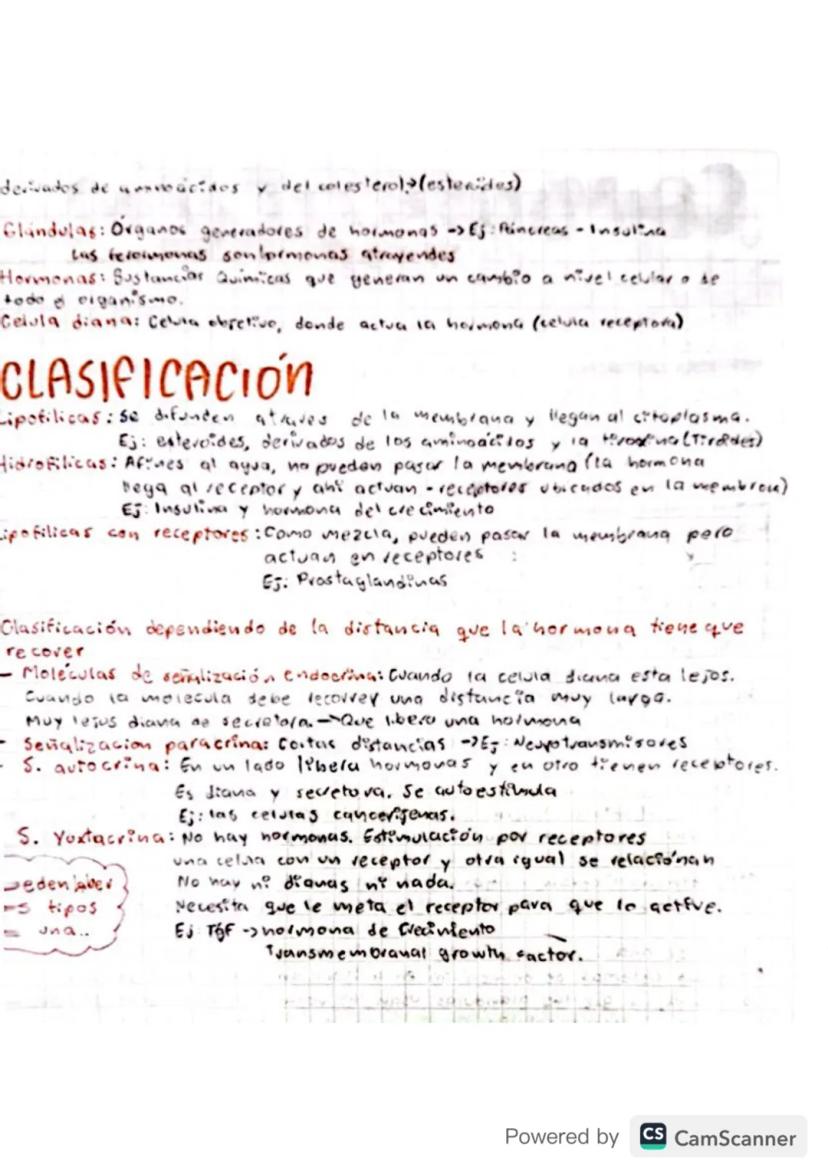 derivados de aminoácidos y del colesterol→(esteroides)
Glándulas: Órganos generadores de hormonas → Ej: Páncreas - Insulina
Las feromonas son hormonas atrayendes
Hormonas: Sustancias Químicas que generan un cambio a nivel celular o se
todo el organismo.
Celula diana: Celula objetivo, donde actua la hormona (celula receptora)
CLASIFICACIÓN
Lipofilicas: Se difunden através de la membrana y llegan al citoplasma.
Ej: esteroides, derivados de los aminoácidos y la tiroxina (Tiroides)
Hidrofilicas: Afines al agua, no pueden pasar la membrana (la hormona
llega al receptor y ahí actuan - receptores ubicados en la membrana)
Ej: Insulina y hormona del crecimiento
Lipofilicas con receptores: Como mezcla, pueden pasar la membrana pero
actuan en receptores
Ej: Prostaglandinas
Clasificación dependiendo de la distancia que la hormona tiene que
recorrer
- Moléculas de señalización endocrina: Cuando la celula diana esta lejos.
Cuando la molecula debe recorrer una distancia muy larga.
Muy lejos diana de secretora. → Que libera una hormona
- Señalizacion paracrina: Cortas distancias → Ej: Neurotransmisores
- S. autocrina: En un lado libera hormonas y en otro tienen receptores.
Es diana y secretora. Se autoestimula
Ej: las celulas cancerigenas.
S. Yuxtacrina: No hay hormonas. Estimulación por receptores
una celula con un receptor y otra igual se relaciónan
No hay ni dianas ni nada.
Necesita que le meta el receptor para que lo active.
Ej TGF → hormona de Crecimiento
Transmembranal growth factor.
eden aber
s tipos
una..
Powered by CS CamScanner